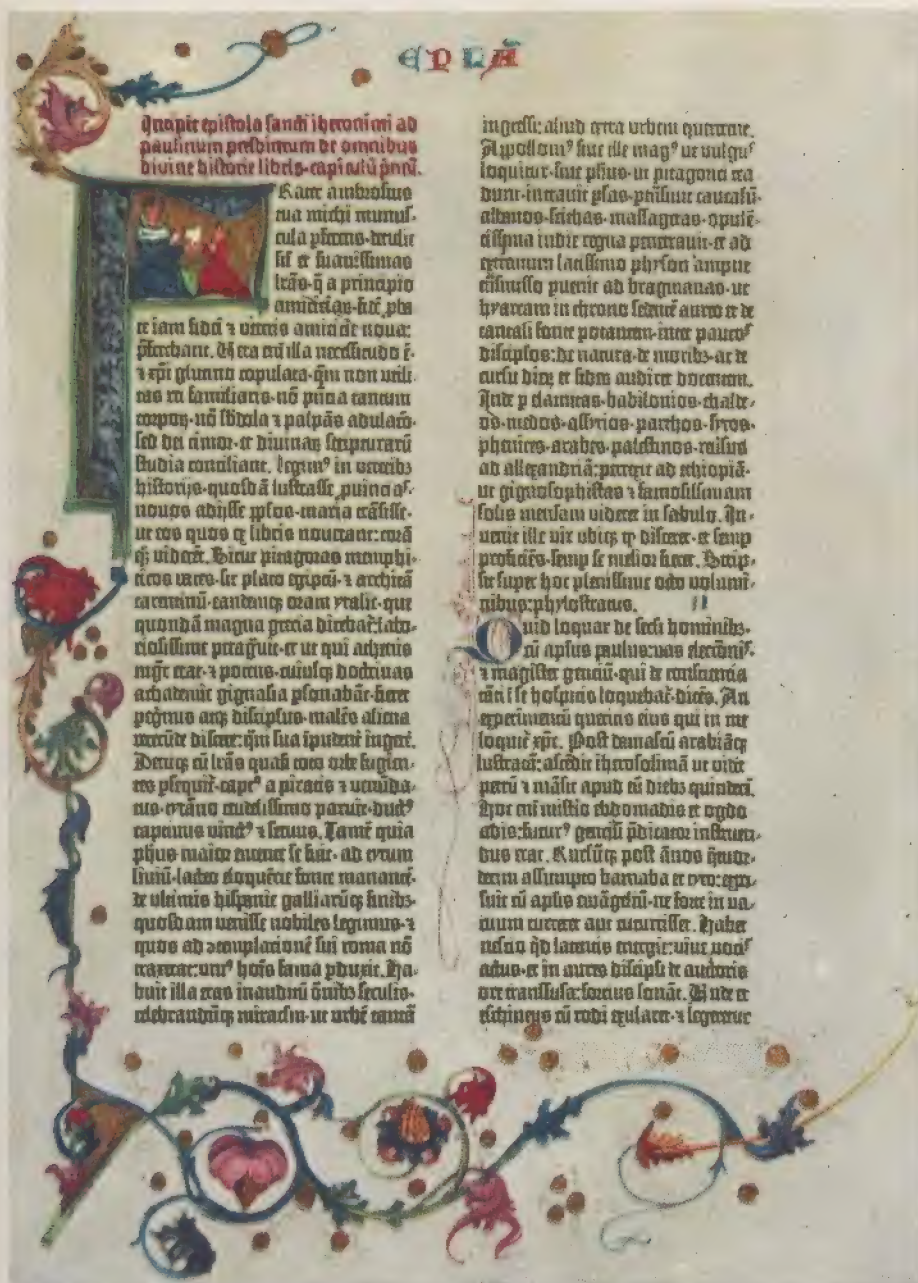 EPLA
Incipit epistola sancti iheronimi ad
paulinum presbiterum de omnibus
divine historie libris·capitulū p̄mū.
FRater ambrosius
tua michi munus-
cula p̄ferens·detulit
sil̄ et suauissimas
lr̄as·q̄ a principio
amicicia₄·fidē ꝓbate
iam fidei ⁊ veteris amicicie noua:
p̄ferebant. Uera em̄ illa necessitudo ē·
⁊ xp̄i glutino copulata·qm̄ non utili-
tas rei familiaris·nō p̄ncia tantum
corpoꝝ·nō s̄bdola ⁊ palpās adulaco·
sed dei timor·et diuinaꝝ scripturarū
studia conciliant. Legim⁹ in veterib₃
historijs·quosdā lustrasse ꝓuincias·
nouos adijsse ꝓplos·maria trāsisse·
ut eos quos ex libris nouerant: corā
q₃ viderēt. Sicut pitagoras memphi-
ticos vates·sic plato egiptū·⁊ architā
tarentinū·eandemq₃ oram ytalie·que
quondā magna grecia dicebat̄: labo-
riosissime ꝑagͣuit·et ut qui athenis
mgr̄ erat·⁊ potens·cuiusq₃ doctrinas
achademie gignasia ꝑsonabāt·fieret
ꝑegrinus atq₃ discipulus·malēs aliena
verecūde discere: qm̄ sua īpudent̄ ingerē.
Deniq₃ cū lr̄as quasi toto orbe fugien-
tes ꝑsequit̄·capt⁹ a piratis ⁊ venūda-
tus·tyrāno crudelissimo paruit·duct⁹
captiuus vinct⁹ ⁊ seruus. Tamē quia
ph̄us maior emente se fuit·ad tytum
liuiū·lacteo eloquēcie fonte manantē·
de vltimis hispanie galliarūq₃ finib₃·
quosdam venisse nobiles legimus·⁊
quos ad ꝯtemplacionē sui roma nō
traxerat: uni⁹ hoīs fama ꝑduxit. Ha-
buit illa etas inauditū ōnib₃ seculis·
celebrandūq₃ miraculū·ut urbē tantā
ingressi: aliud extra urbem quererent.
Apolloni⁹ siue ille mag⁹ ut vulgus
loquitur·siue ph̄us·ut pitagorici tra-
dunt·intrauit ꝑsas·ꝑtrāsiuit caucasū·
albanos·scithas·massagetas·opulē-
tissima indie regna penetrauit·et ad
extremum latissimo physon ampne
trāsmisso ꝑuenit ad bragmanas·ut
hyarcam in throno sedentē aureo et de
tantali fonte potantem·inter paucos
discipulos: de natura·de morib₃·ac de
cursu dieꝝ et siderū audiret docentem.
Inde ꝑ elamitas·babilonios·chalde-
os·medos·assyrios·parthos·syros·
phenices·arabes·palestinos·reuersus
ad allexandriā: perrexit ad ethiopiā·
ut gignosophistas ⁊ famosissimam
solis mensam videret in sabulo. In-
uenit ille vir ubiq₃ qd̄ disceret·et semꝑ
proficiēs·semꝑ se melior fieret. Scrip-
sit super hoc plenissime octo volumi-
nibus: phylostratus. II
QUid loquar de secli hominib₃·
cū apl̄us paulus: vas electōnis·
⁊ magister gentiū·qui de consciencia
tāti ī se hospitis loquebat̄·dicēs. An
experimentū queritis eius qui in me
loquit̄ xp̄c. Post damascū arabiāq₃
lustratā: ascēdit iherosolimā ut videret
petrū ⁊ māsit apud eū dieb₃ quindeci.
Hoc em̄ misterio ebdomadis et ogdo
adis: futur⁹ gentiū p̄dicator instruen-
dus erat. Rursūq₃ post ānos q̄tuor-
decim assumpto barnaba et tyto: expo-
suit cū apl̄is euāgeliū·ne forte in va-
cuum curreret aut cucurrisset. Habet
nescio qd̄ latentis energie: viue vocis
actus·et in aures discipuli de auctoris
ore transfusa: forcius sonāt. Unde et
eschineus cū rodi exularet·⁊ legeretur